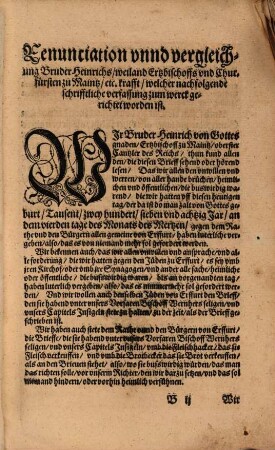 Renunciation vnnd vergleich-
ung Bruder Heinrichs/ weiland Ertzbischoffs vnd Chur-
fürsten zu Maintz/ etc. krafft/ welcher nachfolgende
schrifftliche verfassung zum werck ge-
richtet worden ist.
WIr Bruder Heinrich von Gottes
gnaden/ Ertzbischoff zu Maintz/ oberster
Cantzler des Reichs/ thun kund allen
den/ die diesen Brieff sehend oder hörend
lesen/ Das wir allen den vnwillen vnd
werren/ von aller hande brüchen/ heim-
lichen vnd öffentlichen/ die buswirdig wa-
rend/ die wir hatten vff diesen heutigen
tag/ der da ist do man zalt von Gottes ge-
burt/ Tausent/ zwey hundert/ sieben vnd achtzig Jar/ an
dem vierden tage des Monats des Mertzen/ gegen dem Ra-
the vnd den Bürgern allen gemeine von Erffurt/ haben luterlich ver-
geben/ also/ das es von niemand mehr sol gefordert werden.
Wir bekennen auch/ das wir allen vnwillen vnd ansprache/ vnd al-
le forderung/ die wir hatten gegen den Jüden zu Erffurt/ es sey vmb
jren Kirchof/ oder vmb jre Synagogen/ vnd andere alle sache/ heimliche
oder öffentliche/ die buswirdig waren/ bis an den genanten tag/
haben luterlich vergeben/ also/ das es nimmermehr sol gefordert wer-
den/ Vnd wir wollen auch denselben Jüden von Erffurt die Brieff/
den sie habend vnter vnsers Vorfaren Bischoff Wernhers seligen/ vnd
vnsers Capitels Insigeln/ stete zu halten/ zu der zeit/ als der Brieff ge-
schrieben ist.
Wir haben auch stete dem Rathe vnnd den Bürgern von Erffurt/
die Brieffe/ die sie habend vnter vnsers Vorfaren Bischoff Wernhers
seligen/ vnd vnsers Capitels Insigeln/ vmb die Fleischhacker/ das sie
Fleisch verkeuffen/ vnd vmb die Brothecker das sie Brot verkeuffen/
als an den Brieuen stehet/ also/ wo sie buswirdig würden/ das man
das richten solle/ vor vnserm Richter/ den wir darzu setzen/ vnd das sol
niemand hindern/ oder vorhin heimlich versühnen.
B ij Wir